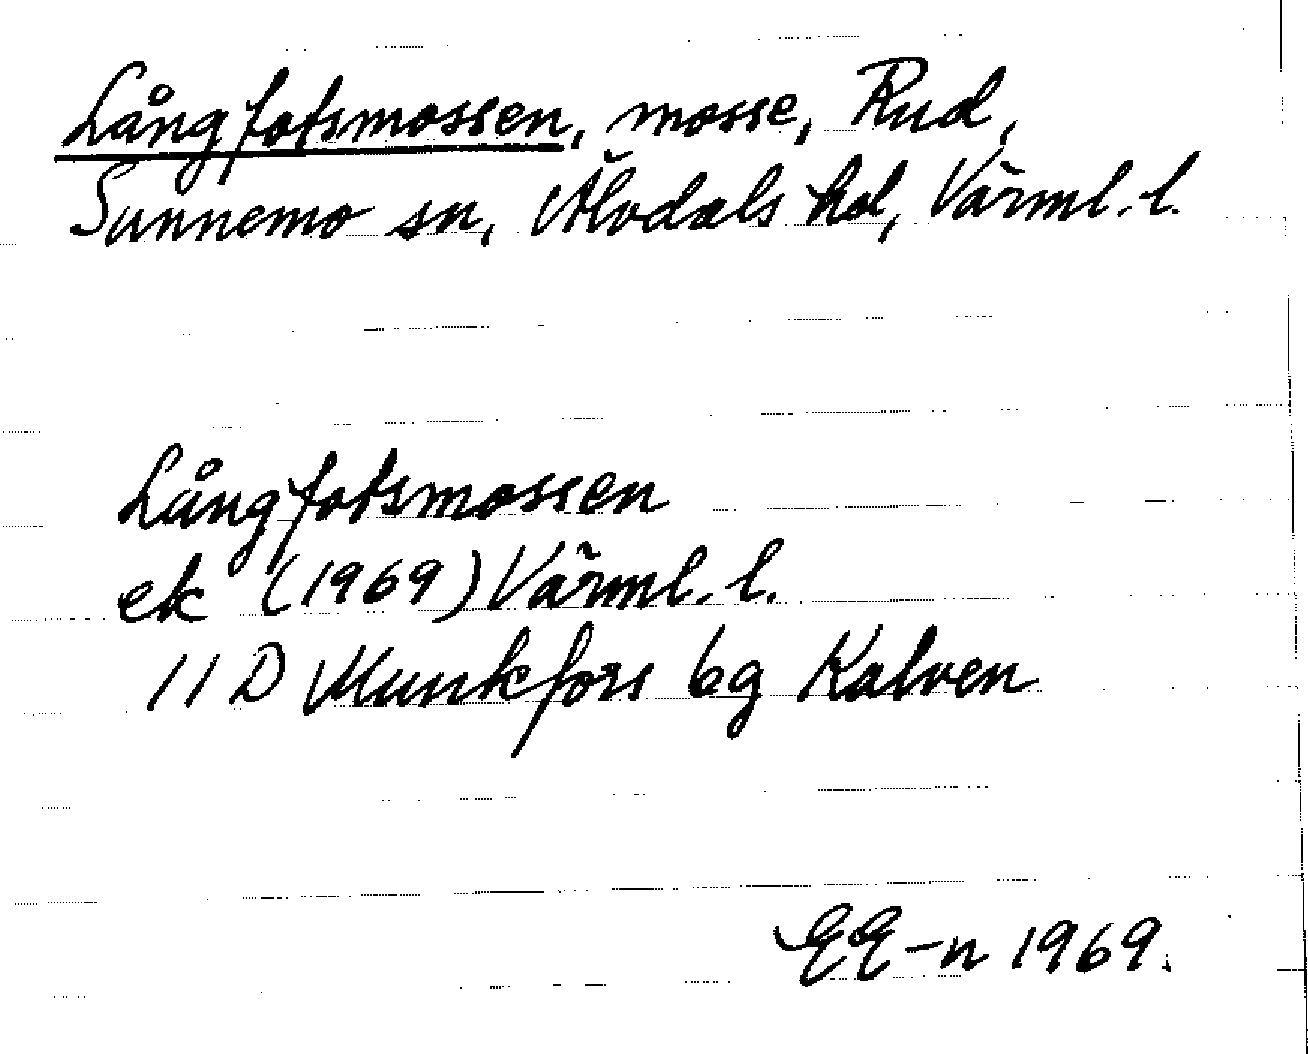 Långfotsmossen, mosse, Rud,
Sunnemo sn, Älvdals hd, Värml. l.
Långfotsmossen
ek (1969) Värml. l.
11 D Munkfors 6g Kalven
EE-n 1969.